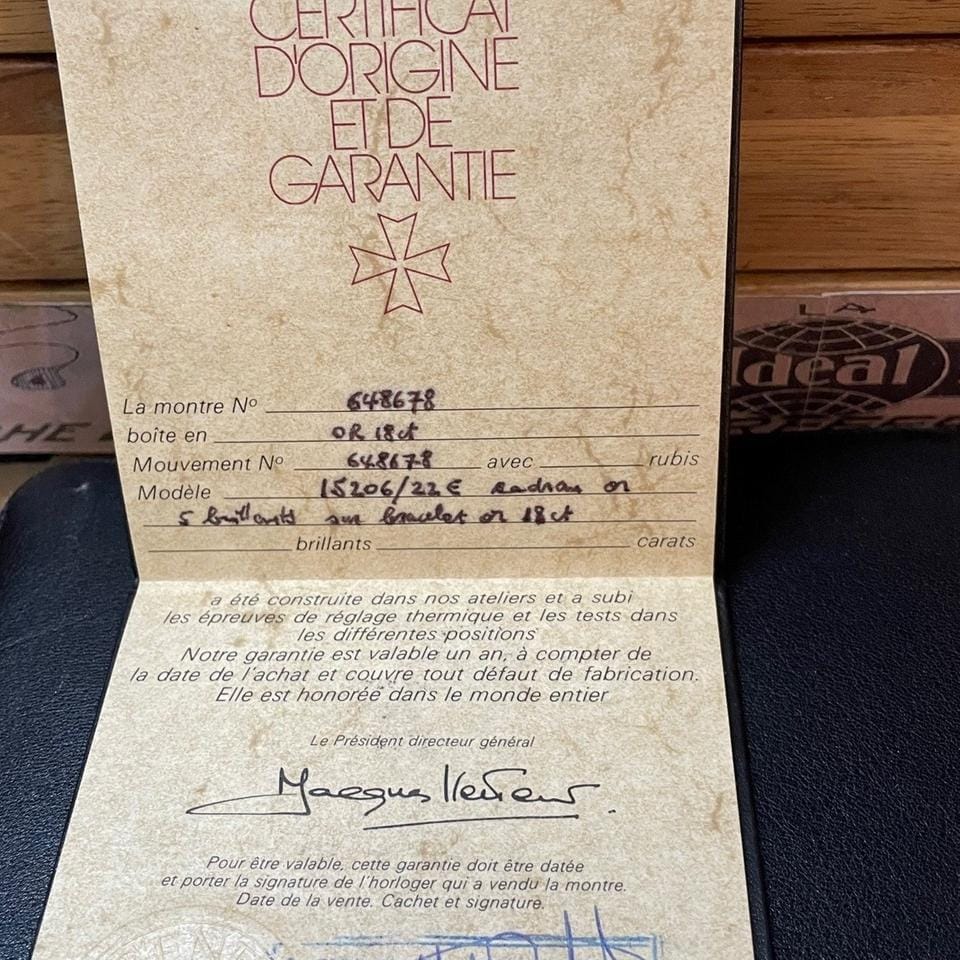 CERTIFICAT
D'ORIGINE
ET DE
GARANTIE
LA
Ideal
HE
La montre Nº 648678
boîte en OR 18ct
Mouvement Nº 648678 avec rubis
Modèle 15206/22E cadran or
5 brillants sur bracelet or 18ct
brillants carats
a été construite dans nos ateliers et a subi
les épreuves de réglage thermique et les tests dans
les différentes positions
Notre garantie est valable un an, à compter de
la date de l'achat et couvre tout défaut de fabrication.
Elle est honorée dans le monde entier
Le Président directeur général
Pour être valable, cette garantie doit être datée
et porter la signature de l'horloger qui a vendu la montre.
Date de la vente. Cachet et signature.